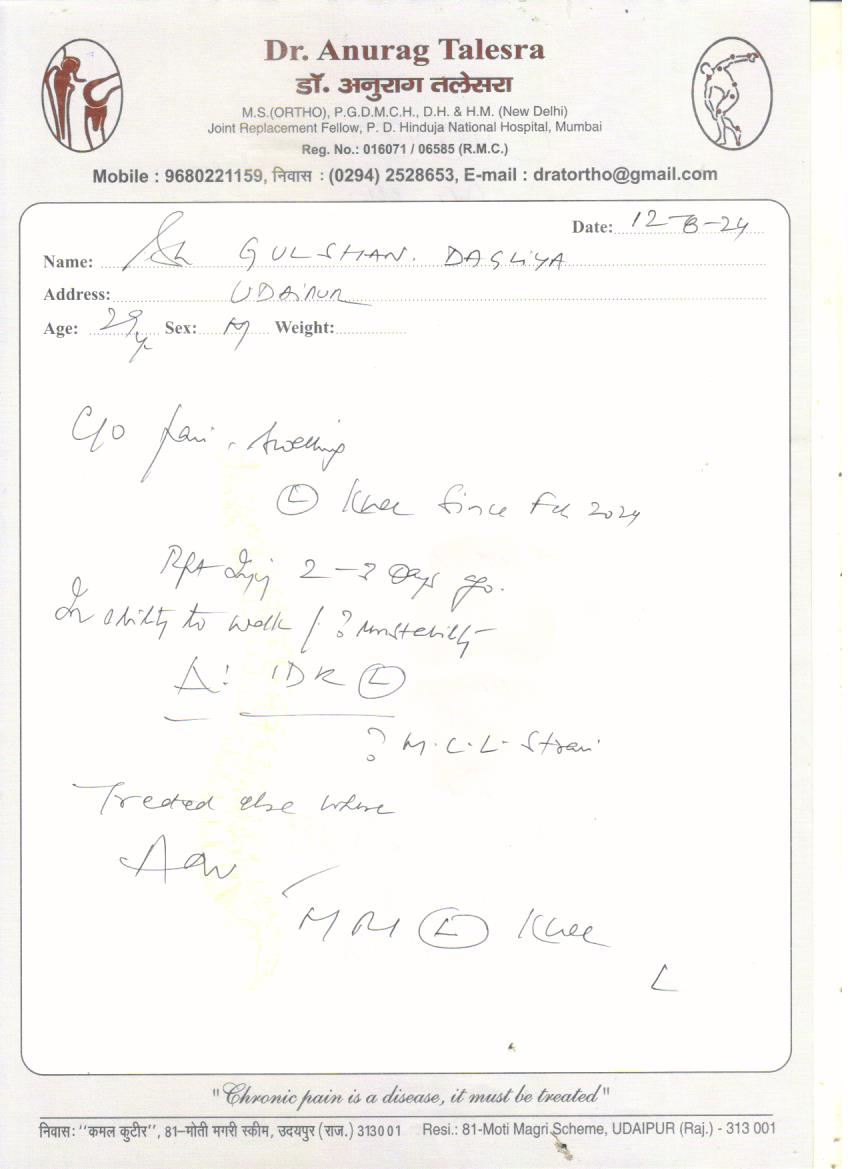 Dr. Anurag Talesra
डॉ. अनुराग तलेसरा
M.S.(ORTHO), P.G.D.M.C.H., D.H. & H.M. (New Delhi)
Joint Replacement Fellow, P. D. Hinduja National Hospital, Mumbai
Reg. No.: 016071 / 06585 (R.M.C.)
Mobile : 9680221159, निवास : (0294) 2528653, E-mail : dratortho@gmail.com
Date: 12-8-24
Name: Sh GULSHAN. DAGLIYA
Address: UDAIPUR
Age: 29 yr Sex: M Weight:
C/o pain, swelling
(L) Knee Since Feb 2024
Injury 2-3 Days ago.
In ability to walk / ? unstability
Δ: IDK (L)
? M.C.L. Strain
Treated else where
Adv
MRI (L) Knee
"Chronic pain is a disease, it must be treated"
निवास: "कमल कुटीर", 81-मोती मगरी स्कीम, उदयपुर (राज.) 313001 Resi.: 81-Moti Magri Scheme, UDAIPUR (Raj.) - 313 001